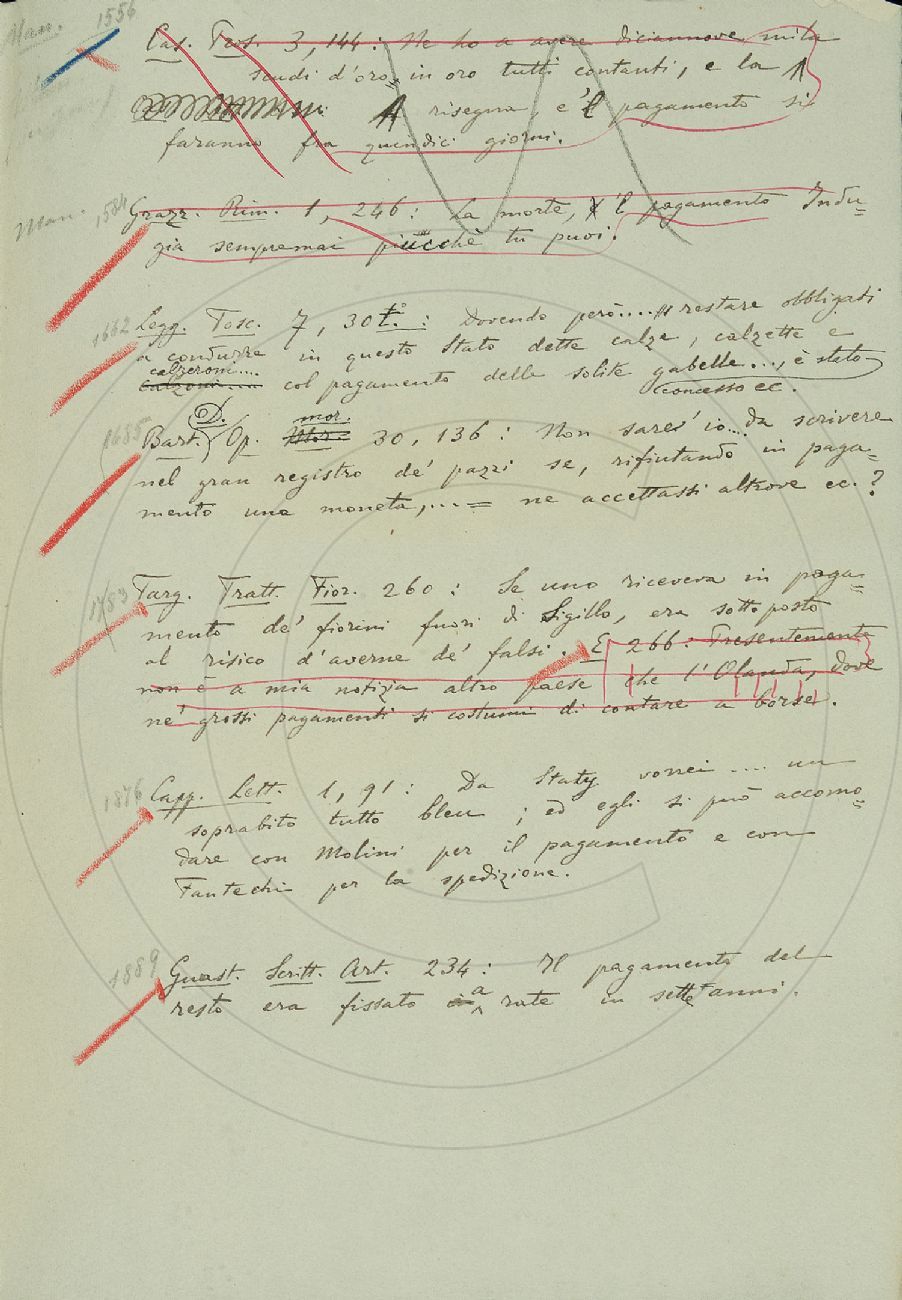 Man. 1556
Cas. Pros. 3, 144: Ne ho a avere diciannove mila
scudi d'oro in oro tutti contanti, e la
A risegna, e 'l pagamento si
faranno fra quindici giorni.
Man. 1584
Grazz. Rim. 1, 246: La morte, 'l pagamento Indu=
gia sempremai piucchè tu puoi.
1662
Legg. Tosc. 7, 30 t.°: Dovendo però.... restare obbligati
a condurre in questo Stato dette calze, calzette e
calzeroni....
calzoni.... col pagamento delle solite gabelle..., è stato
concesso ec.
1685
Bart. D. Op. mor. Mor. 30, 136: Non sare' io... da scrivere
nel gran registro de' pazzi se, rifiutando in paga=
mento una moneta,... = ne accettassi altrove ec.?
1783
Targ. Tratt. Fior. 260: Se uno riceveva in paga=
mento de' fiorini fuori di Sigillo, era sottoposto
al risico d'averne de' falsi. E 266: Presentemente
non è a mia notizia altro paese che l'Olanda, dove
ne' grossi pagamenti si costumi di contare a borse.
1876
Capp. Lett. 1, 91: Da Staty vorrei.... un
soprabito tutto bleu; ed egli si può accomo=
dare con Molini per il pagamento e con
Fantechi per la spedizione.
1889
Guast. Scritt. Art. 234: Il pagamento del
resto era fissato a rate in sette anni.